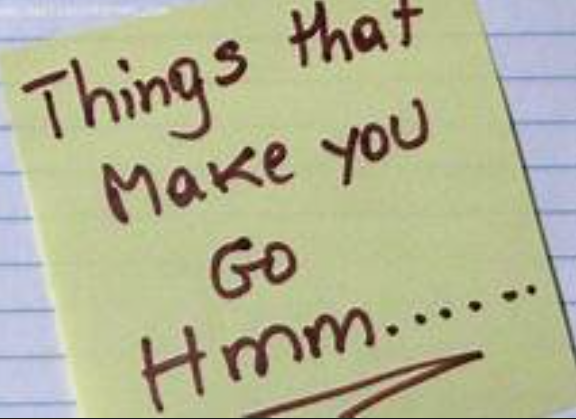 Things that
Make you
Go
Hmm......